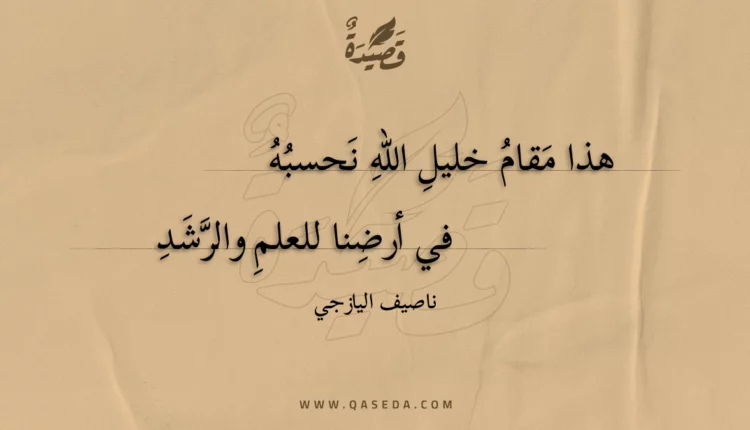 قَصِيدَةٌ
هذا مَقامُ خليلِ اللَهِ نَحسبُهُ
في أرضِنا للعلمِ والرَّشَدِ
ناصيف اليازجي
WWW.QASEDA.COM